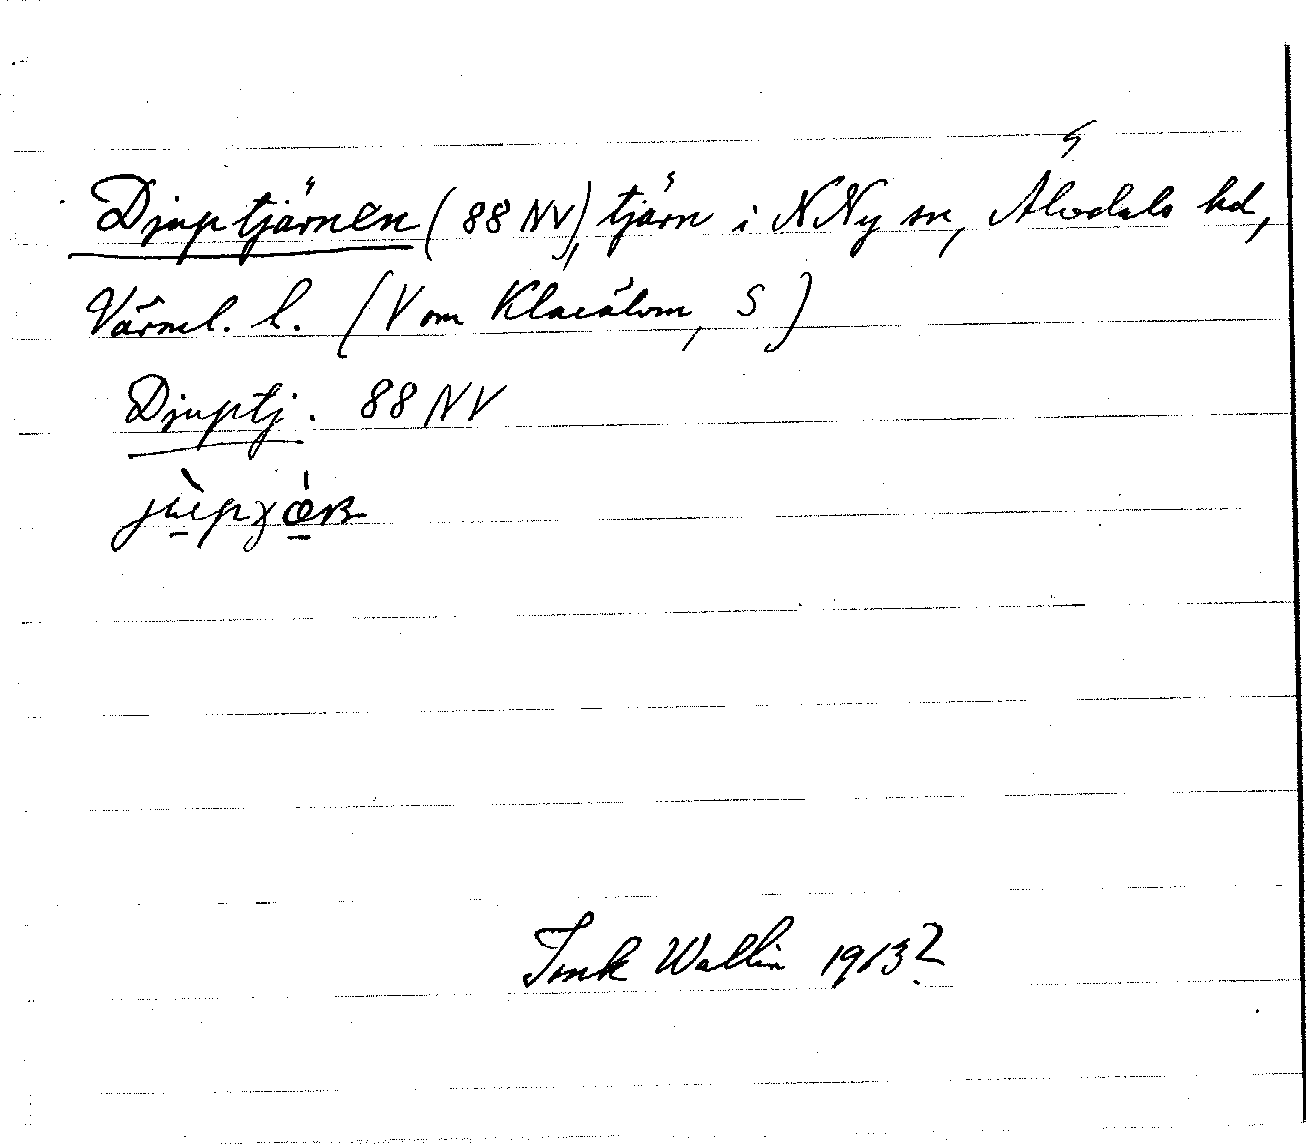 Djuptjärnen (88 NV), tjärn i NNy sn, Älvdals hd,
Värml. l. (V om Klarälven, S)
Djuptj. 88 NV
Wallin 1913?